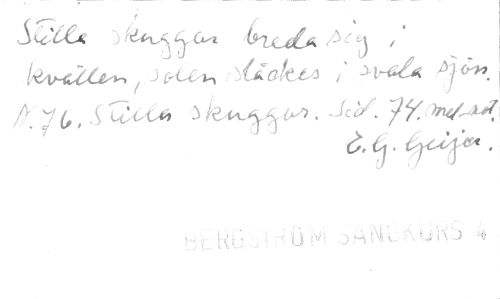 Stilla skuggor breda sig i
kvällen, solen släckes i svala sjön.
N. 76. Stilla skuggor. Sid. 74. med not.
E. G. Geijer.
BERGSTRÖM SÅNGKURS 4